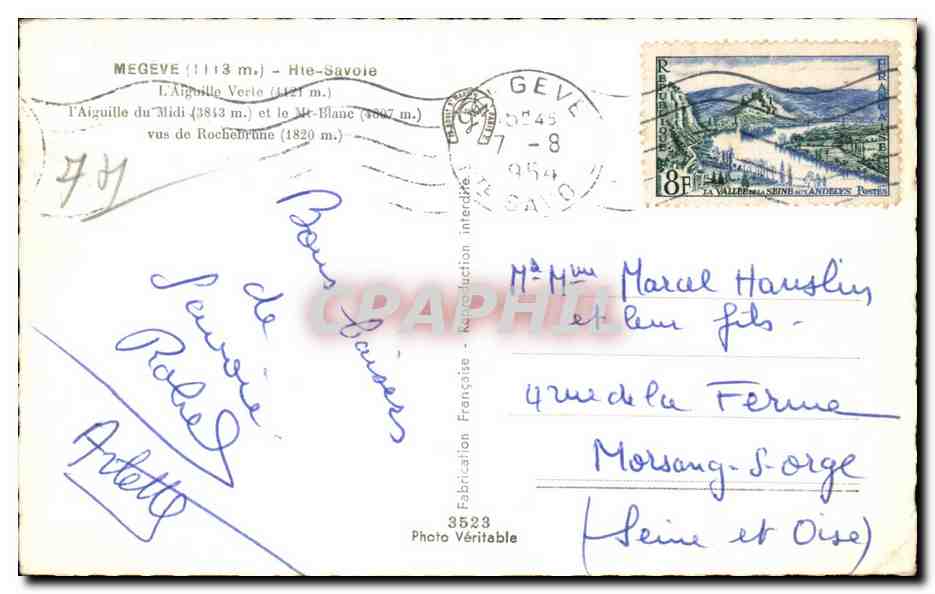 MEGEVE (1113 m.) - Hte-Savoie
L'Aiguille Verte (4121 m.)
l'Aiguille du Midi (3843 m.) et le Mt-Blanc (4807 m.)
vus de Rochebrune (1820 m.)
GEVE
7 - 8
1954
REPUBLIQUE
FRANÇAISE
8F
LA VALLÉE DE LA SEINE AUX ANDELYS POSTES
Bons baisers
de
Savoie
Arlette
Fabrication Française - Reproduction interdite
3523
Photo Véritable
CPAPHIL
Mr Mme Marcel
et leur fils -
4 rue de la Ferme
Morsang-S-orge
(Seine et Oise)